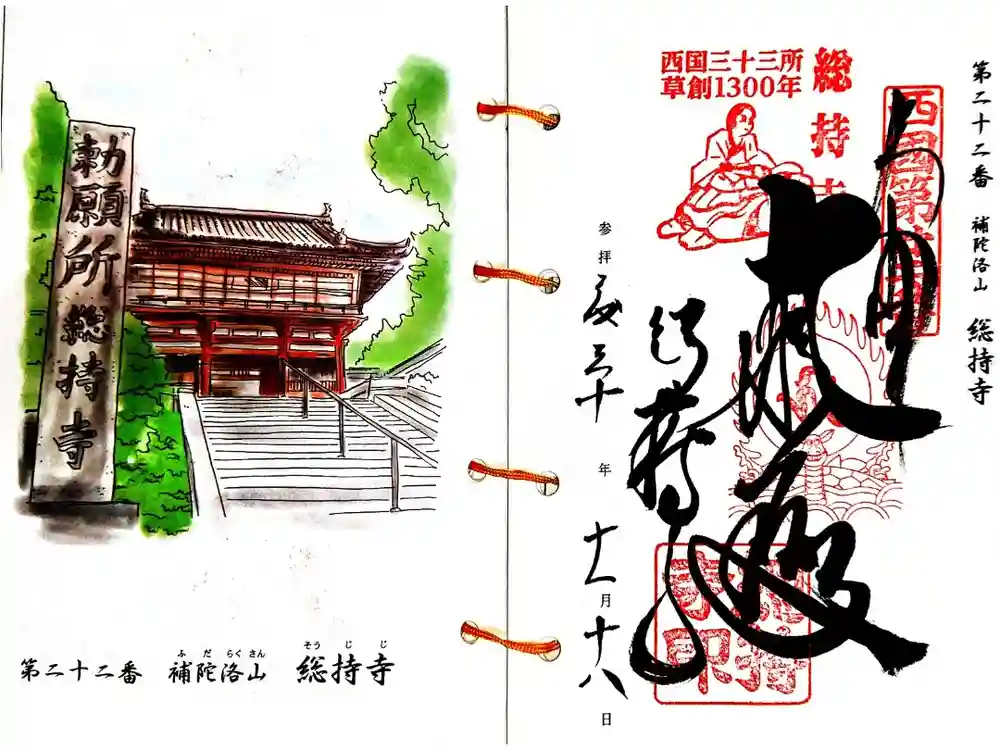 勅願所総持寺
ふだらくさん そうじじ
第二十二番 補陀洛山 総持寺
第二十二番 補陀洛山 総持寺
西国三十三所
草創1300年
総持
西國第
総持寺
参拝 三十年 十一月十八日